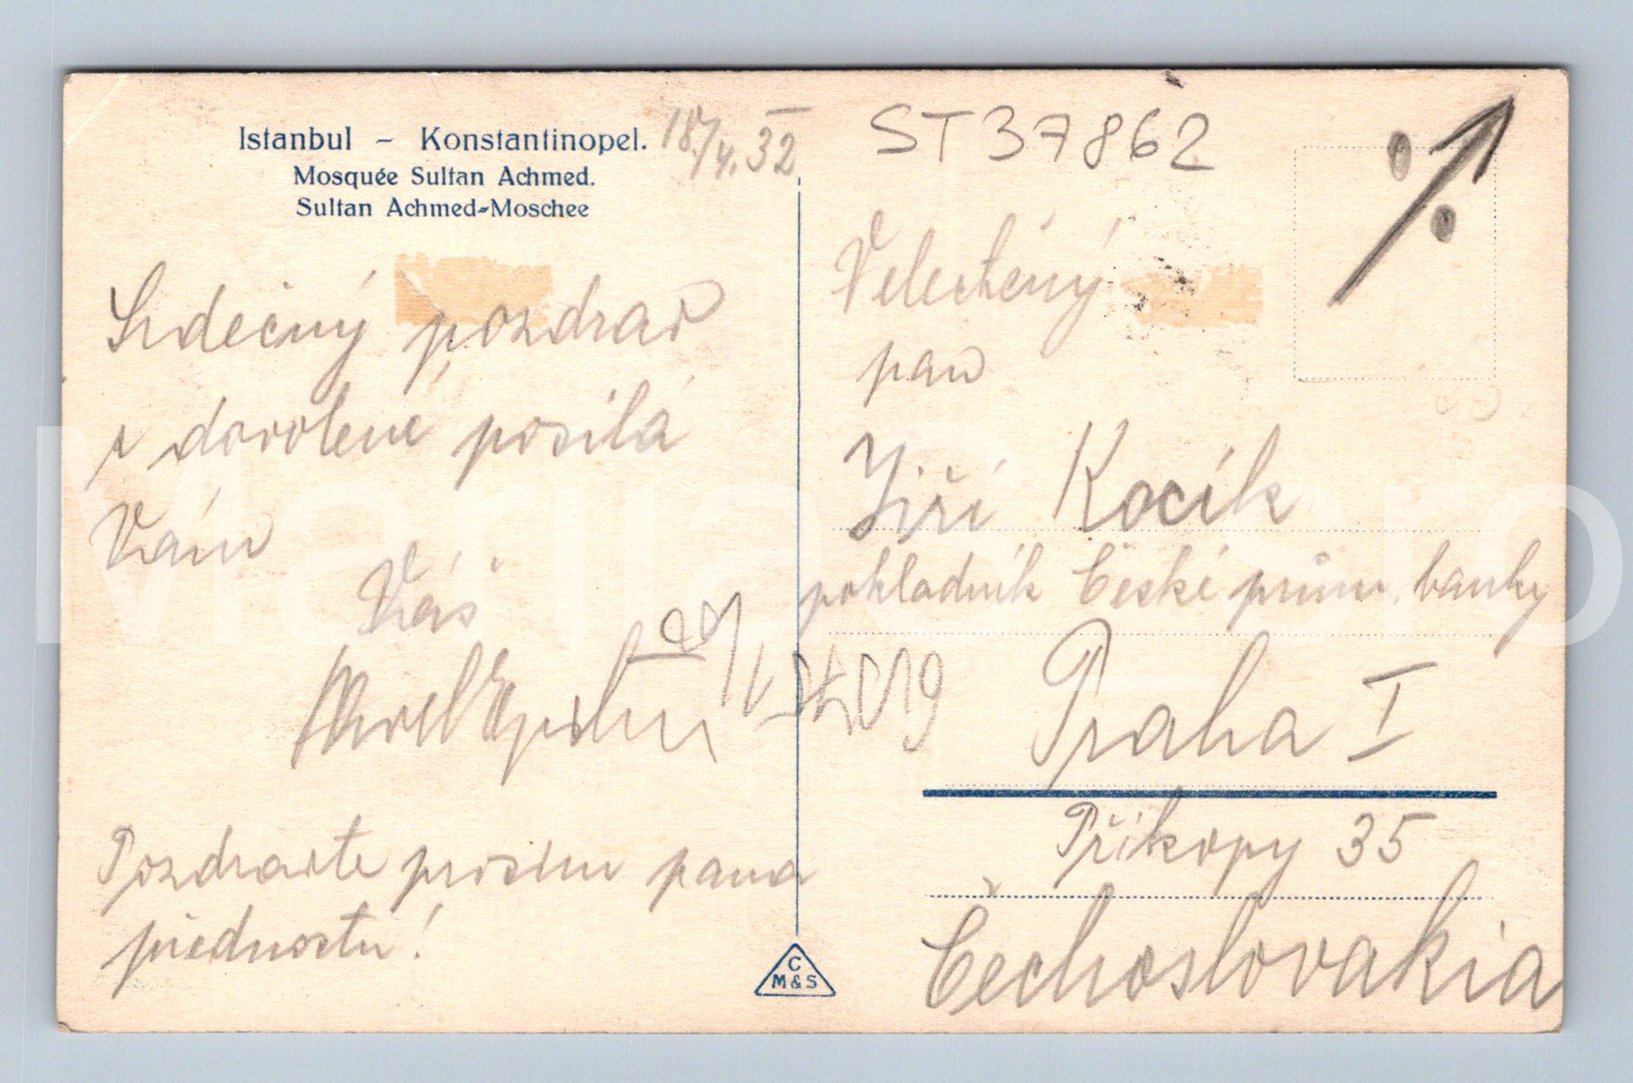 Istanbul – Konstantinopel.
Mosquée Sultan Achmed.
Sultan Achmed-Moschee
18/4. 32
ST37862
Srdečný pozdrav
s dovolené posílá
Vám
Váš
Pozdravte prosím pana
přednostu!
Velectěný
pan
Jiří Kocík
pokladník České prům. banky
Praha I
Příkopy 35
Čechoslovakia
C
M&S